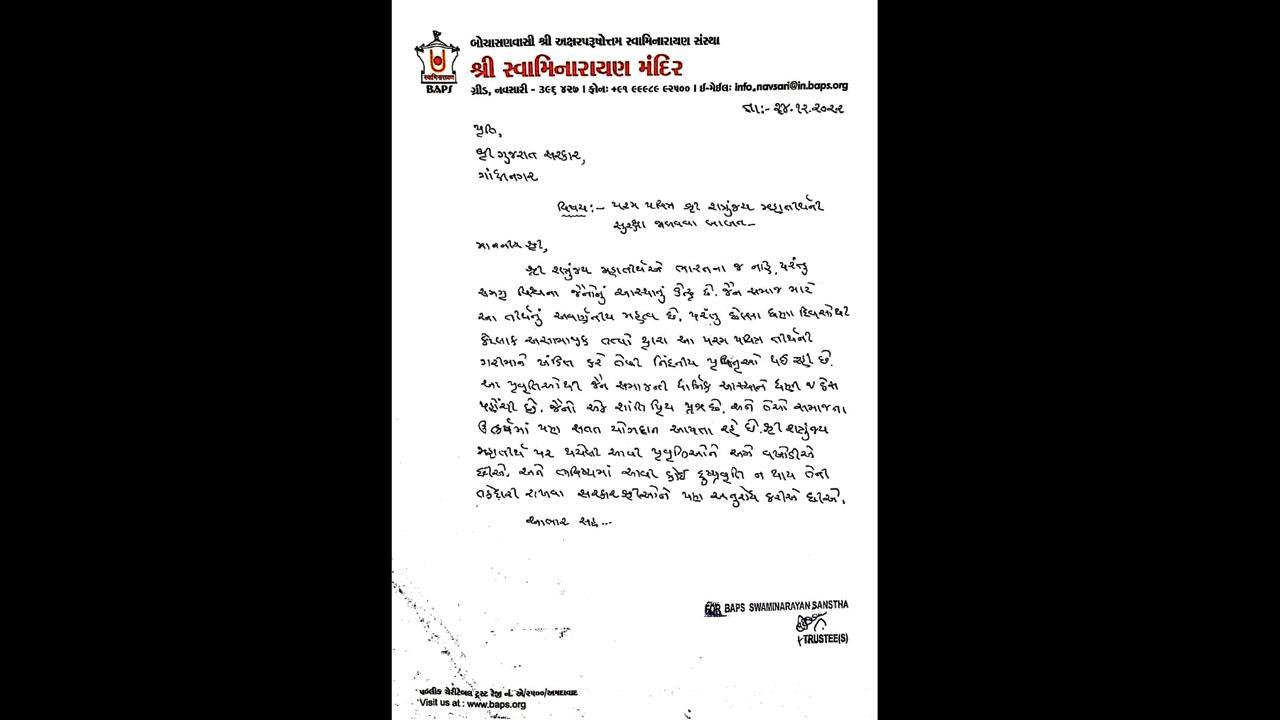 બોચાસણવાસી શ્રી અક્ષરપુરૂષોત્તમ સ્વામિનારાયણ સંસ્થા
શ્રી સ્વામિનારાયણ મંદિર
સ્વામિનારાયણ
BAPS
ગ્રીડ, નવસારી - ૩૯૬ ૪૨૭ । ફોનઃ +૯૧ ૯૯૯૮૯ ૯૨૫૦૦ । ઈ-મેઈલઃ info.navsari@in.baps.org
તા:- ૨૪.૧૨.૨૦૨૨
પ્રતિ,
શ્રી ગુજરાત સરકાર,
ગાંધીનગર
વિષય:- પરમ પવિત્ર શ્રી શત્રુંજય મહાતીર્થની
સુરક્ષા જાળવવા બાબત-
માનનીય શ્રી,
શ્રી શત્રુંજય મહાતીર્થ એ ભારતના જ નહિ, પરંતુ
સમગ્ર વિશ્વના જૈનોનું આસ્થાનું કેન્દ્ર છે. જૈન સમાજ માટે
આ તીર્થનું અવર્ણનીય મહત્વ છે, પરંતુ છેલ્લા ઘણા દિવસોથી
કેટલાક અસામાજીક તત્વો દ્વારા આ પરમ પવિત્ર તીર્થની
ગરીમાને ખંડિત કરે તેવી નિંદનીય પ્રવૃત્તિઓ થઈ રહી છે.
આ પ્રવૃતિઓથી જૈન સમાજની ધાર્મિક આસ્થાને ઘણી જ ઠેસ
પહોંચી છે. જૈનો એક શાંતિ પ્રિય પ્રજા છે, અને તેઓ સમાજના
ઉત્કર્ષમાં પણ સતત યોગદાન આપતા રહે છે. શ્રી શત્રુંજય
મહાતીર્થ પર થયેલી આવી પ્રવૃત્તિઓને અમે વખોડીએ
છીએ. અને ભવિષ્યમાં આવી કોઈ દુષ્પ્રવૃતિ ન થાય તેની
તકેદારી રાખવા સરકારશ્રીઓને પણ અનુરોધ કરીએ છીએ.
આભાર સહ...
FOR BAPS SWAMINARAYAN SANSTHA
TRUSTEE(S)
પબ્લીક ચેરીટેબલ ટ્રસ્ટ રેજી નં. એ/૨૫૦૦/અમદાવાદ
Visit us at : www.baps.org